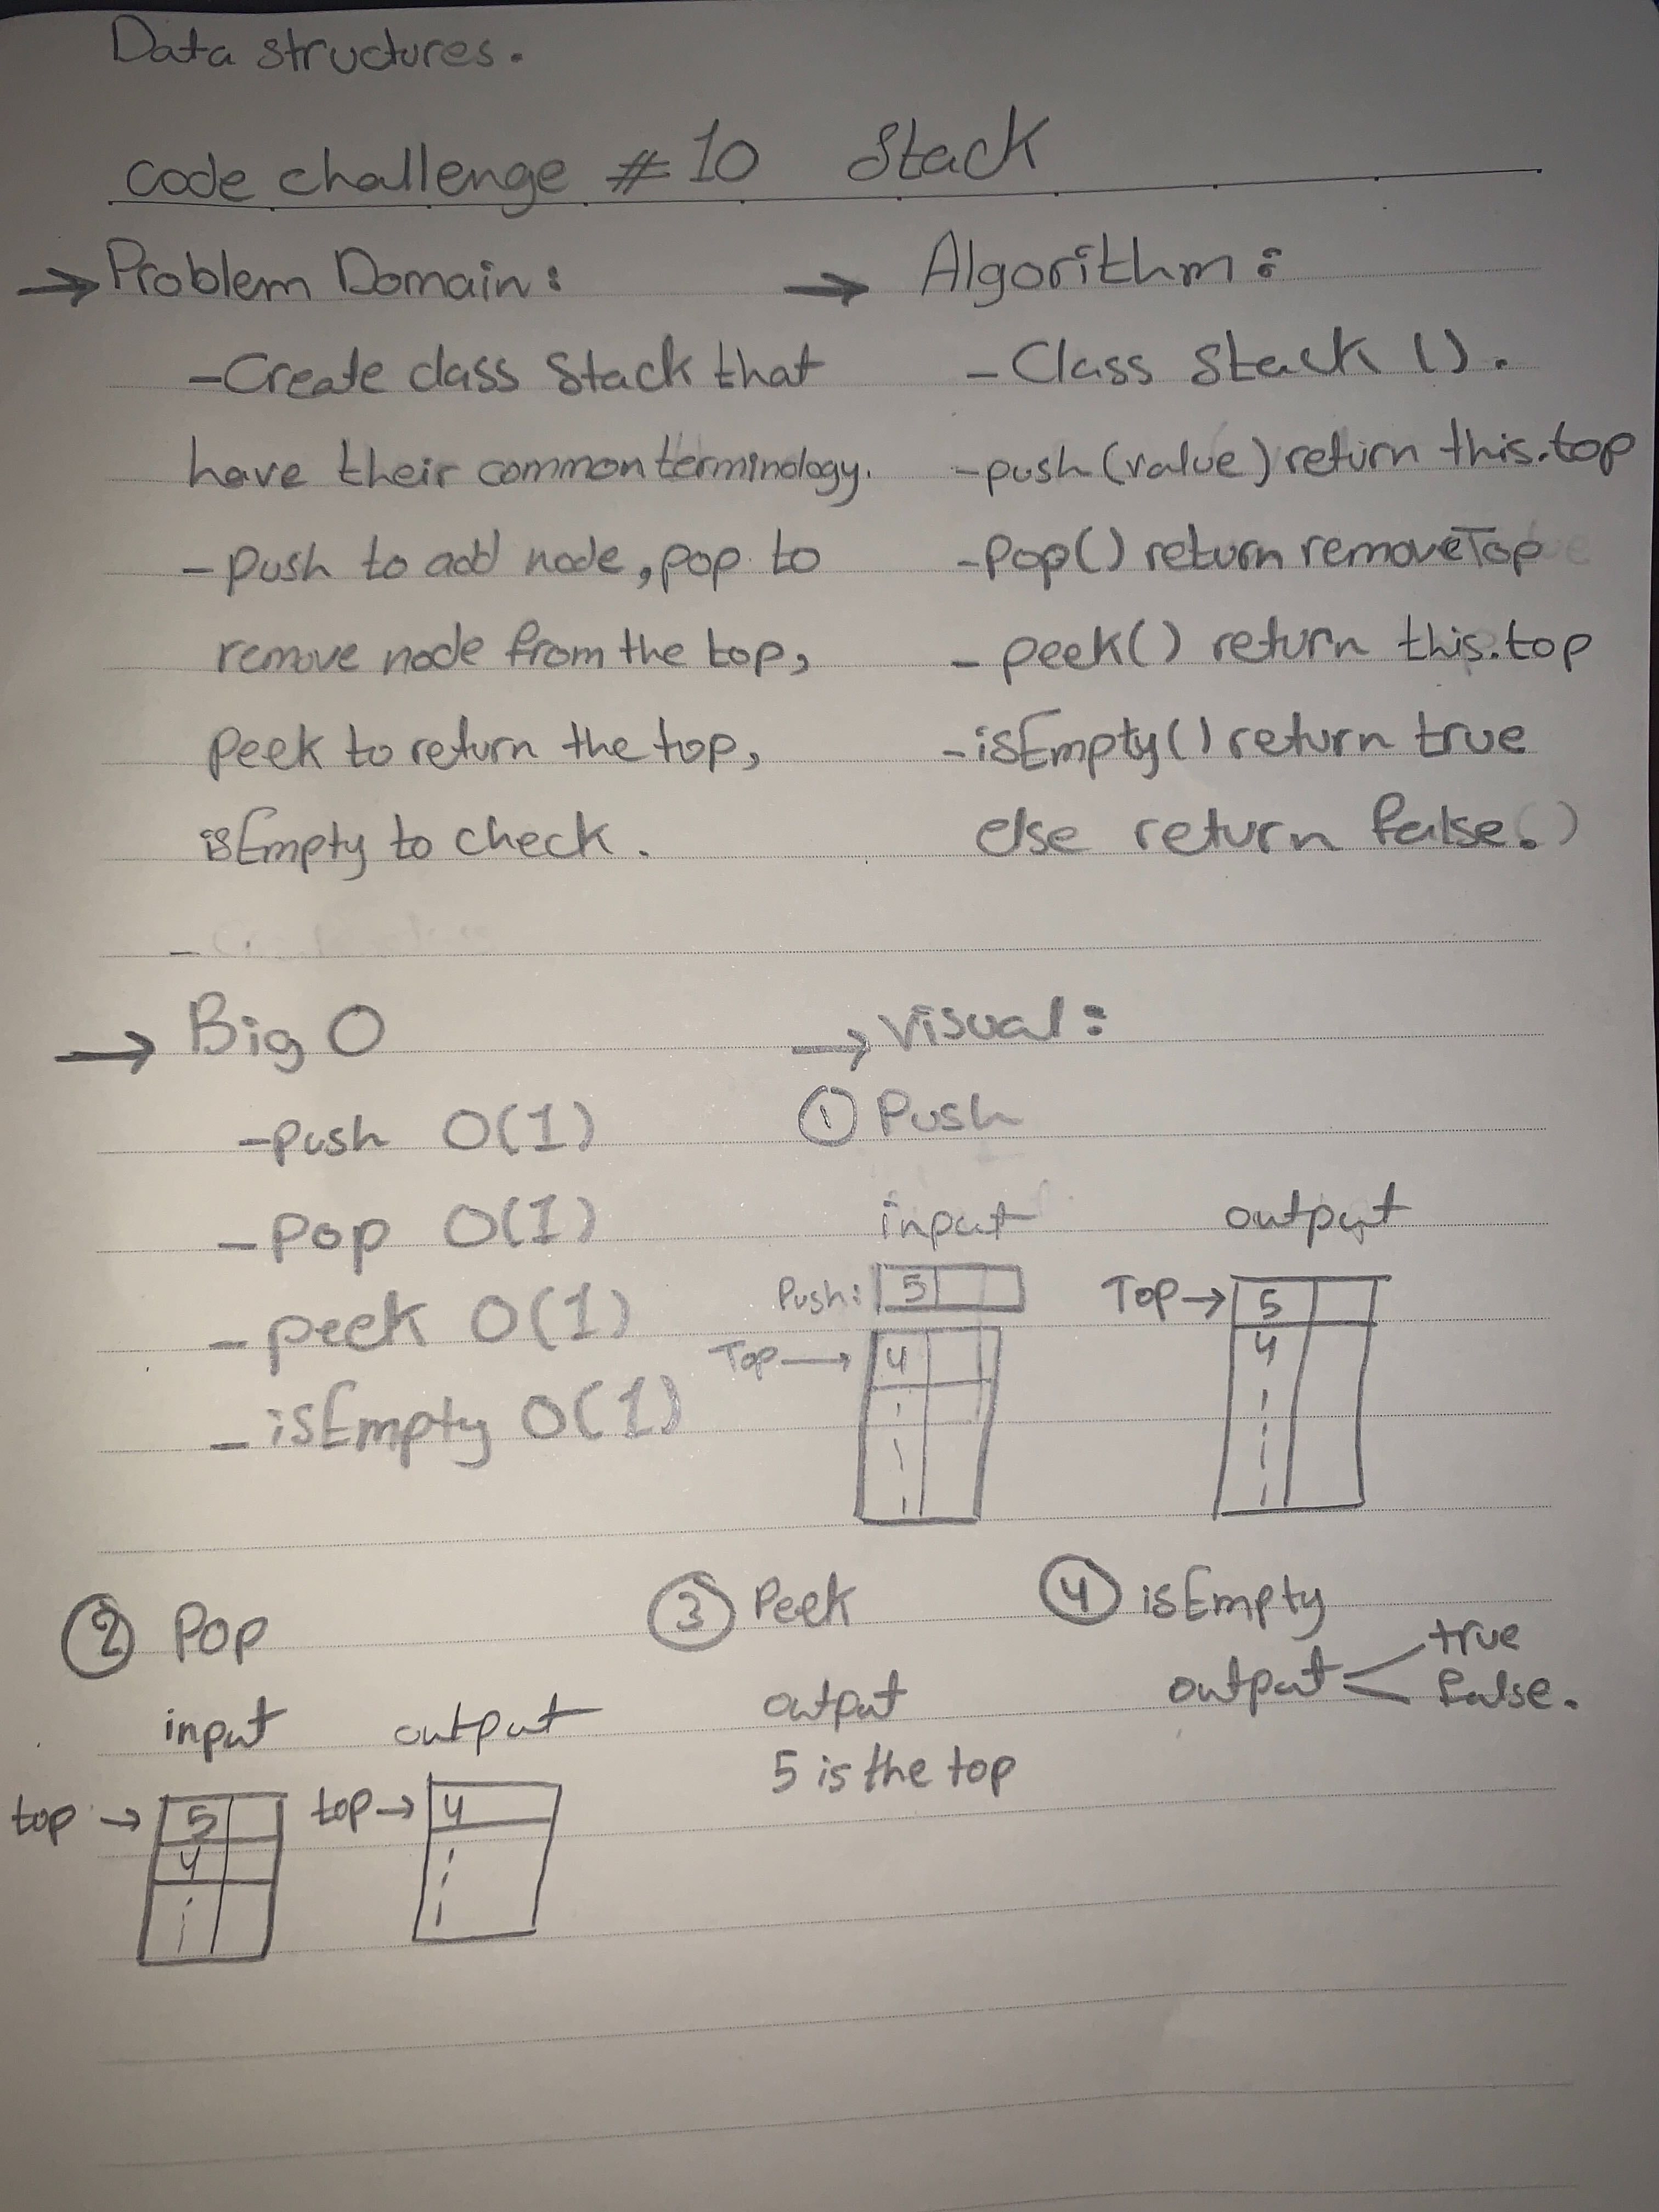 Data structures.
code challenge #10 Stack
→ Problem Domain:
- Create class Stack that
have their common terminology.
- push to add node, pop to
remove node from the top,
peek to return the top,
isEmpty to check.
→ Algorithm:
- Class Stack ().
- push (value) return this.top
- pop() return removeTop
- peek() return this.top
- isEmpty() return true
else return false.)
→ Big O
- push O(1)
- pop O(1)
- peek O(1)
- isEmpty O(1)
→ Visual:
① Push
input output
Push: 5
Top → 4
Top → 5
4
② Pop
input output
top → 5
4
top → 4
③ Peek
output
5 is the top
④ isEmpty
output < true
false.